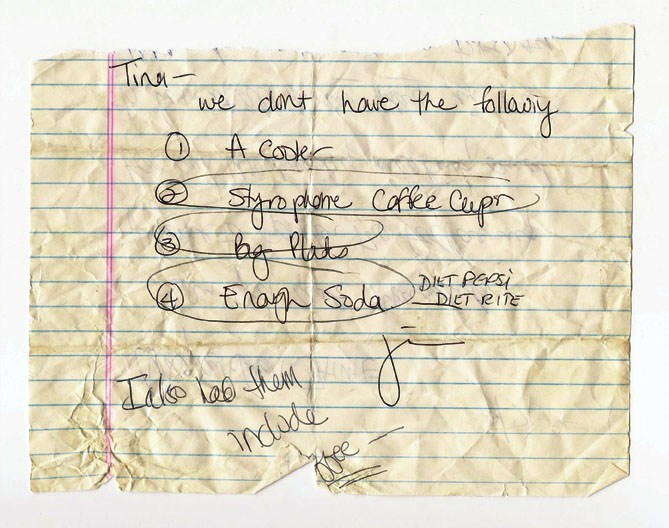 Tina—
we dont have the following
① A Cooler
② Styrophome Coffee Cups
③ Big Plates
④ Enough Soda DIET PEPSI
DIET RITE
I also had them
include